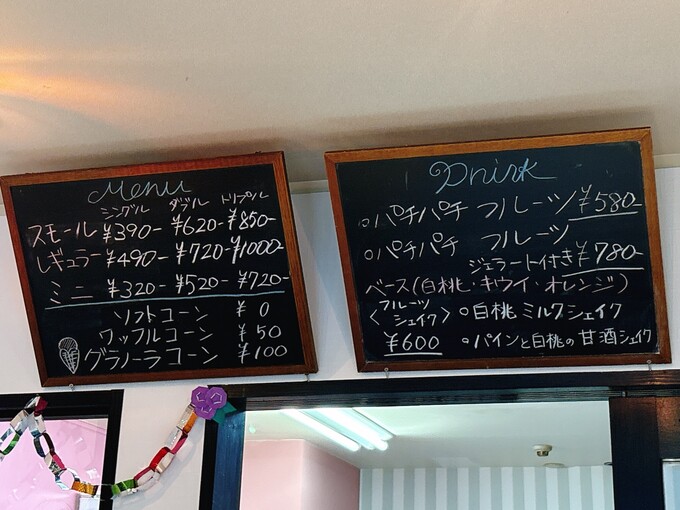 Menu
シングル ダブル トリプル
スモール ¥390- ¥620- ¥850-
レギュラー ¥490- ¥720- ¥1000-
ミニ ¥320- ¥520- ¥720-
ソフトコーン ¥0
ワッフルコーン ¥50
グラノーラコーン ¥100
Drink
○パチパチ フルーツ ¥580-
○パチパチ フルーツ
ジェラート付き ¥780-
ベース(白桃・キウイ・オレンジ)
〈フルーツ
シェイク〉
¥600
○白桃 ミルクシェイク
○パインと白桃の甘酒シェイク